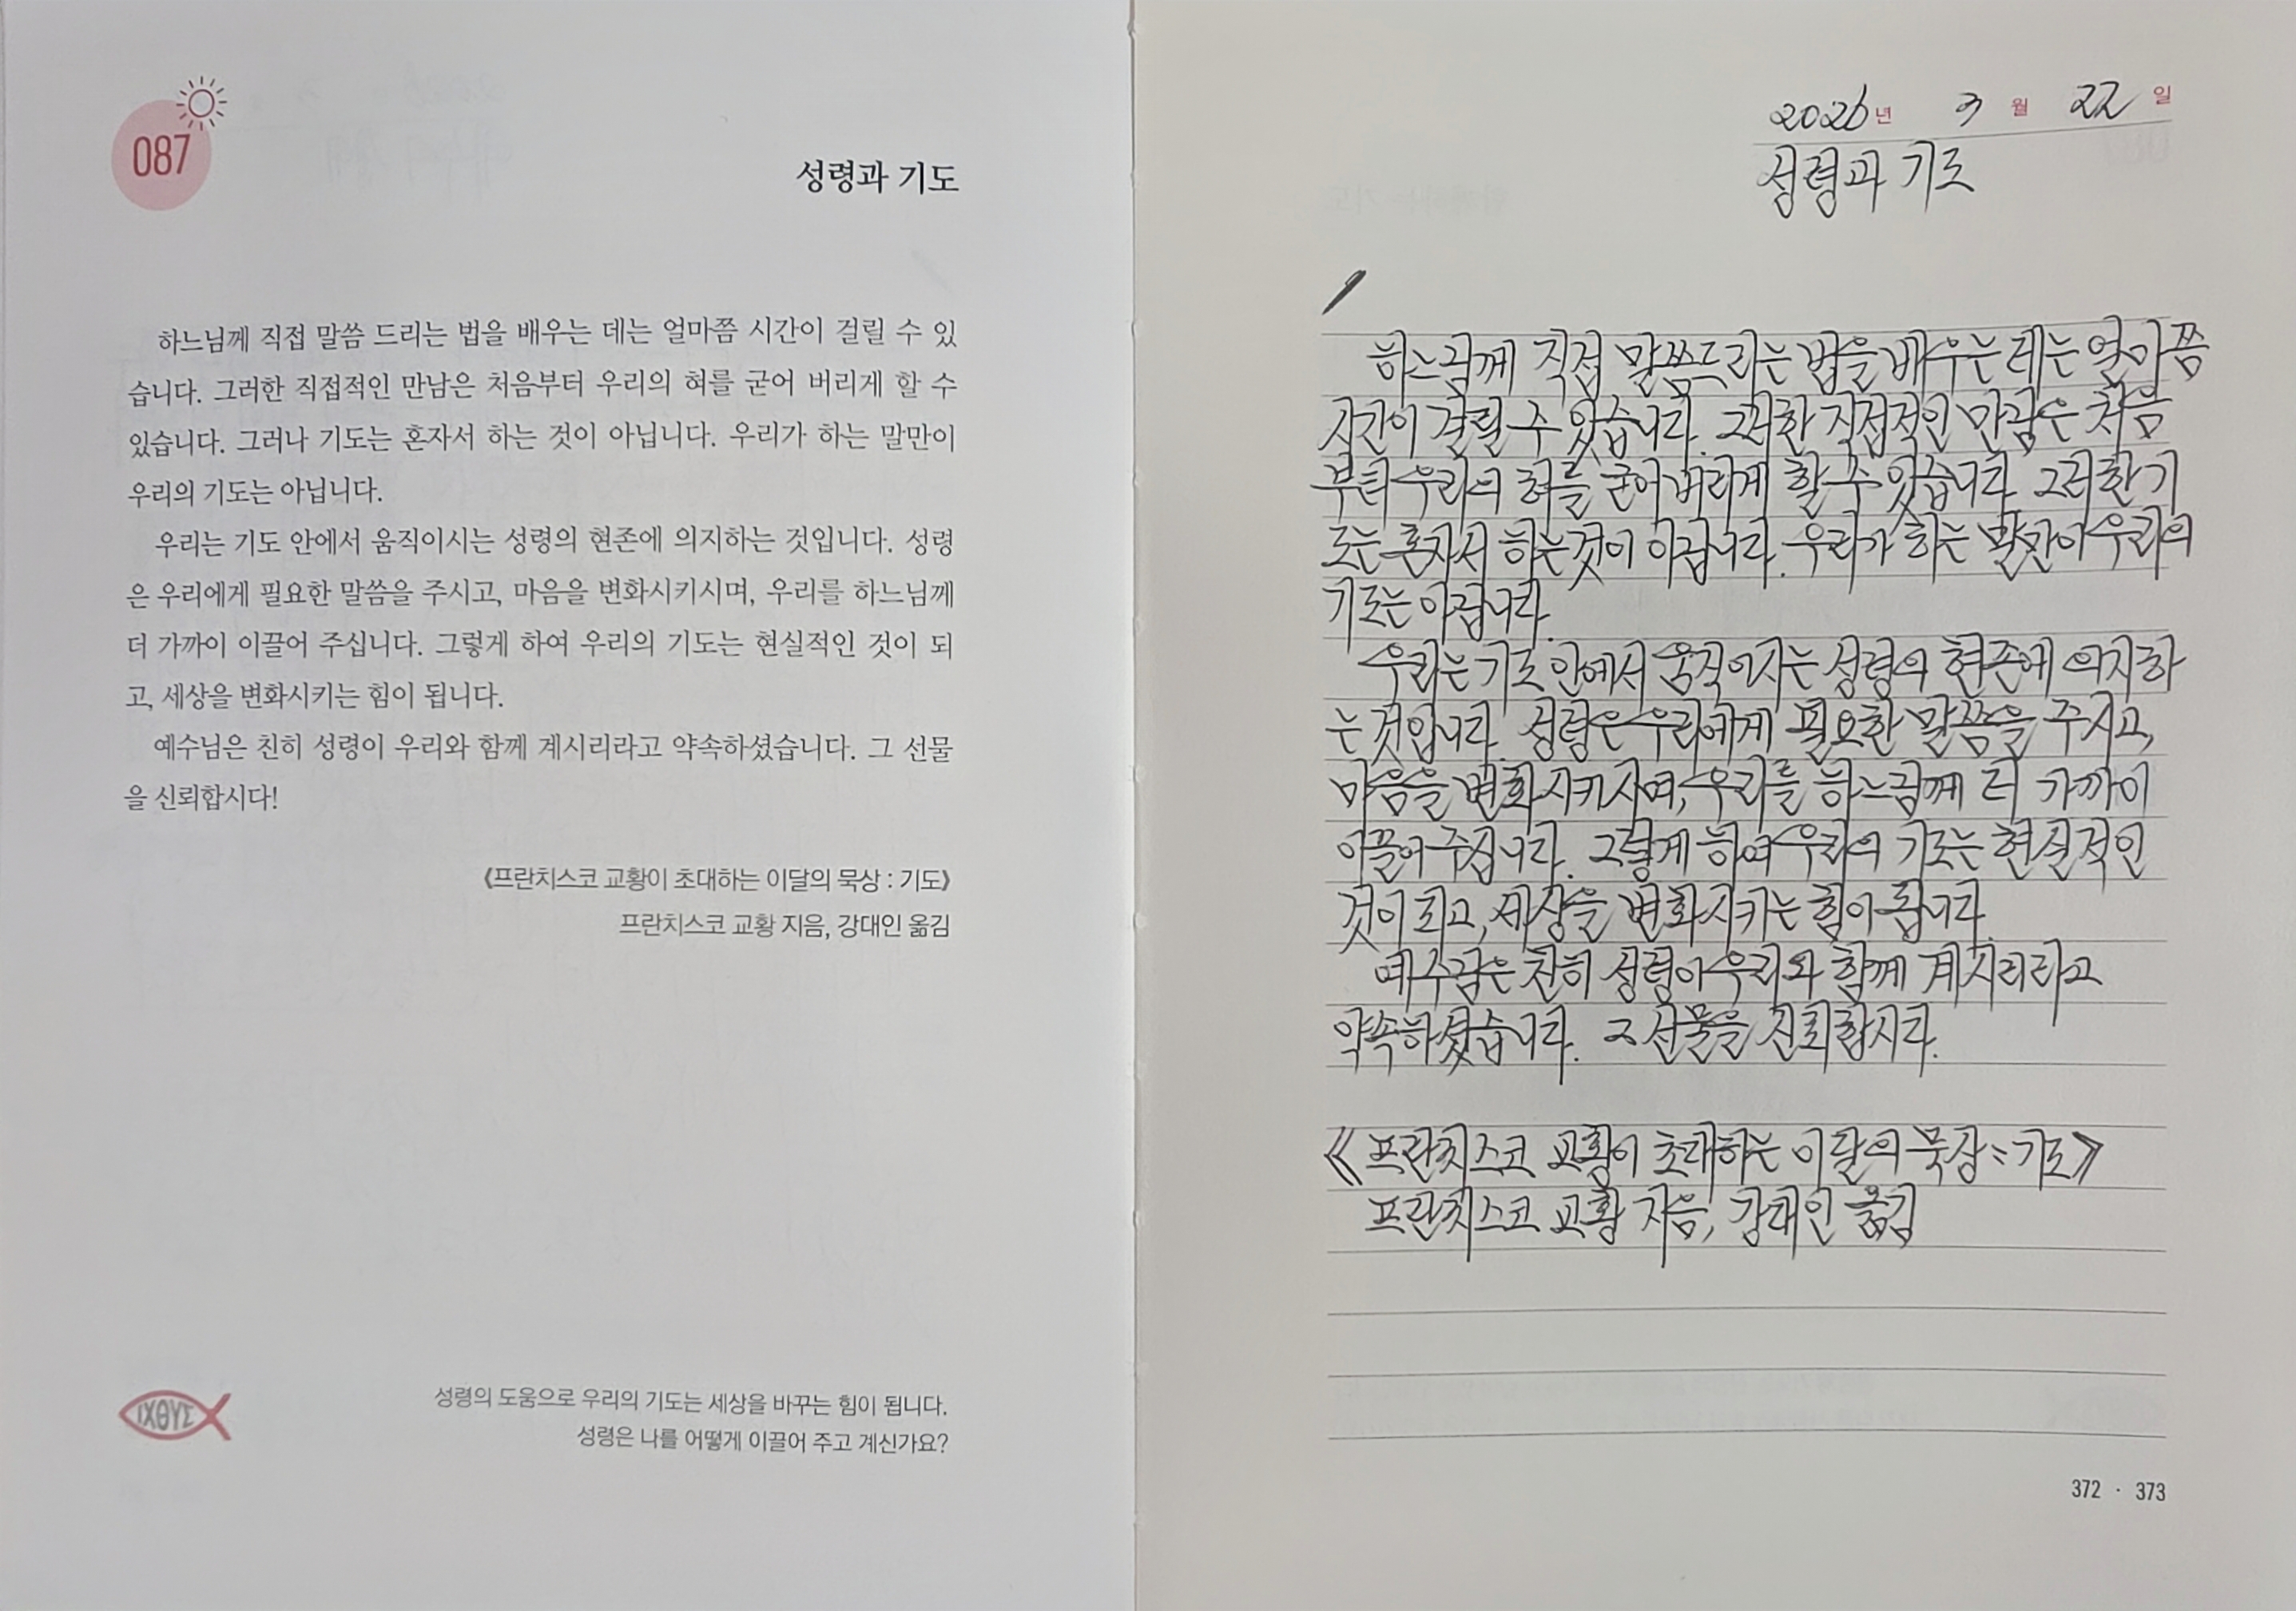 087
성령과 기도
하느님께 직접 말씀 드리는 법을 배우는 데는 얼마쯤 시간이 걸릴 수 있
습니다. 그러한 직접적인 만남은 처음부터 우리의 혀를 굳어 버리게 할 수
있습니다. 그러나 기도는 혼자서 하는 것이 아닙니다. 우리가 하는 말만이
우리의 기도는 아닙니다.
우리는 기도 안에서 움직이시는 성령의 현존에 의지하는 것입니다. 성령
은 우리에게 필요한 말씀을 주시고, 마음을 변화시키시며, 우리를 하느님께
더 가까이 이끌어 주십니다. 그렇게 하여 우리의 기도는 현실적인 것이 되
고, 세상을 변화시키는 힘이 됩니다.
예수님은 친히 성령이 우리와 함께 계시리라고 약속하셨습니다. 그 선물
을 신뢰합시다!
《프란치스코 교황이 초대하는 이달의 묵상 : 기도》
프란치스코 교황 지음, 강대인 옮김
ΙΧΘΥΣ
성령의 도움으로 우리의 기도는 세상을 바꾸는 힘이 됩니다.
성령은 나를 어떻게 이끌어 주고 계신가요?
2026년 3월 22일
성령과 기도
하느님께 직접 말씀드리는 법을 배우는 데는 얼마쯤
시간이 걸릴 수 있습니다. 그러한 직접적인 만남은 처음
부터 우리의 혀를 굳어 버리게 할 수 있습니다. 그러한 기
도는 혼자서 하는 것이 아닙니다. 우리가 하는 말만이 우리의
기도는 아닙니다.
우리는 기도 안에서 움직이시는 성령의 현존에 의지하
는 것입니다. 성령은 우리에게 필요한 말씀을 주시고,
마음을 변화시키시며, 우리를 하느님께 더 가까이
이끌어 주십니다. 그렇게 하여 우리의 기도는 현실적인
것이 되고, 세상을 변화시키는 힘이 됩니다.
예수님은 친히 성령이 우리와 함께 계시리라고
약속하셨습니다. 그 선물을 신뢰합시다.
《프란치스코 교황이 초대하는 이달의 묵상 : 기도》
프란치스코 교황 지음, 강대인 옮김
372 · 373